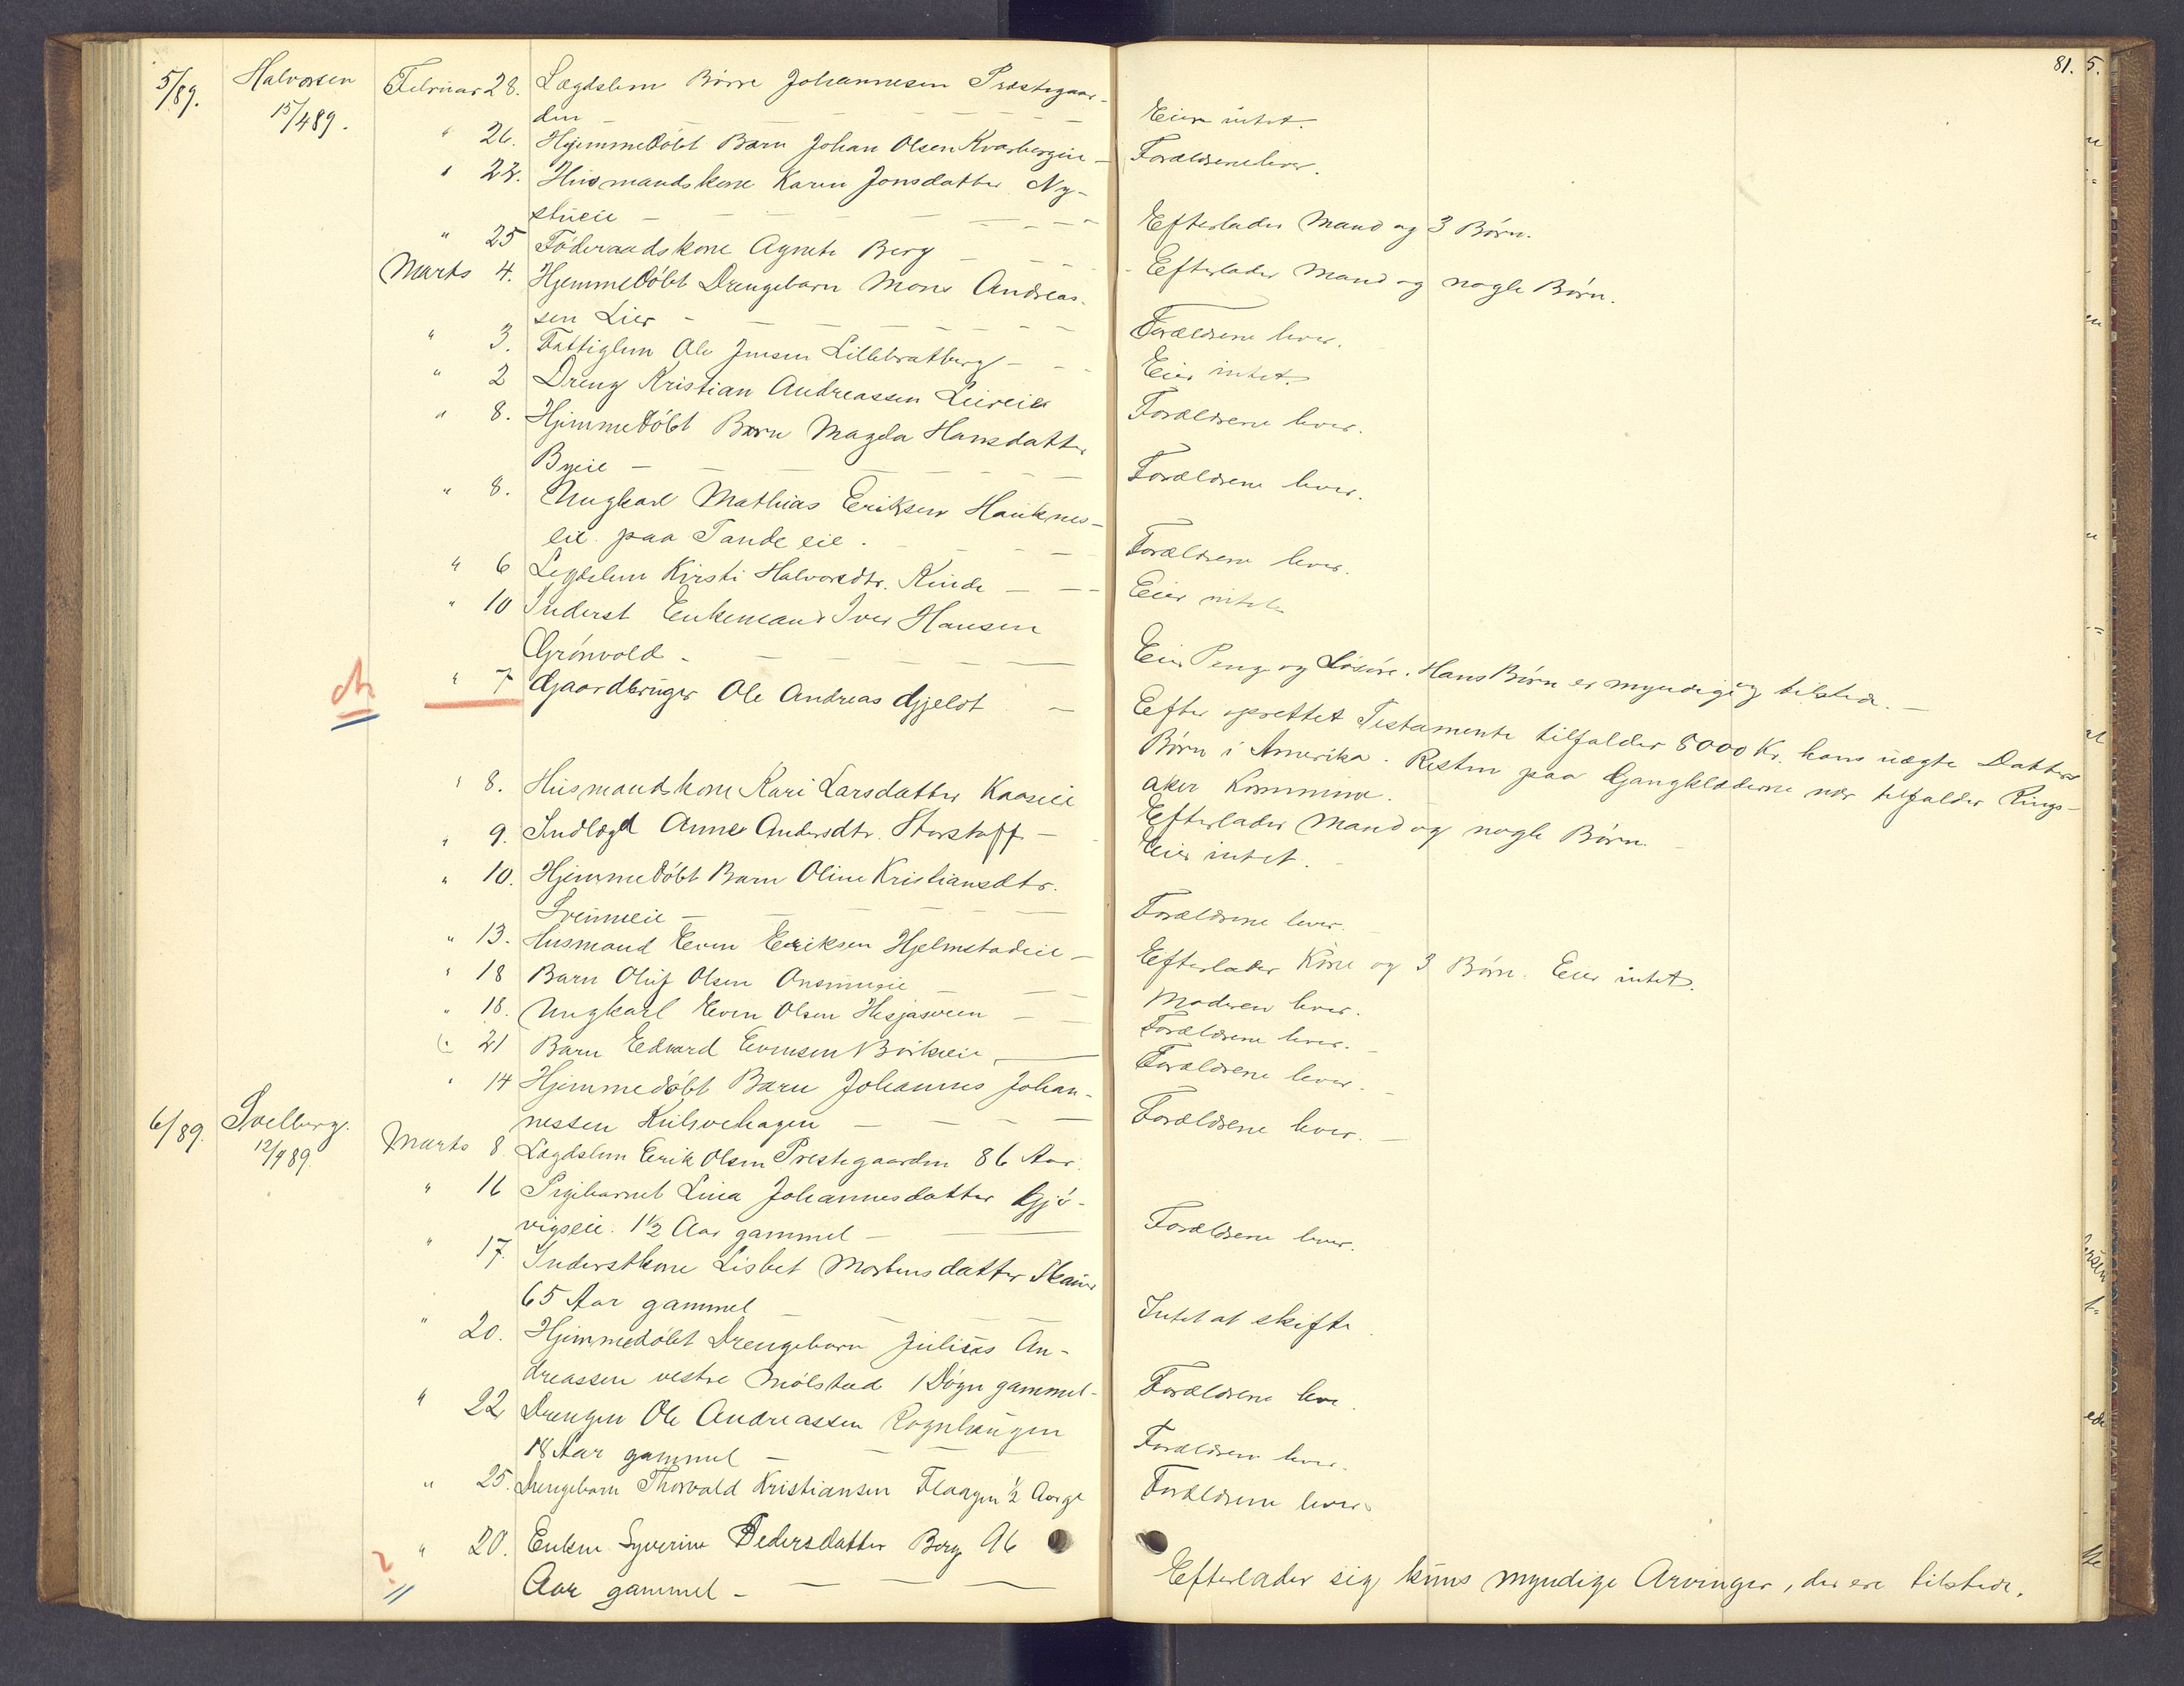 81. 5.
5/89. Halvorsen Februar 28. Lægdslem Børre Johannesen Præstegaar-
15/489. den — Eier intet.
" 26. Hjemmedøbt Barn Johan Olsen Kvarbergeie — Forældrene lever.
" 22. Husmandskone Karen Jonsdatter Ny-
stueie — Efterlader Mand og 3 Børn.
" 25 Føderaadskone Agnete Berg — Efterlader Mand og nogle Børn.
Marts 4. Hjemmedøbt Drengebarn Mons Andreas-
sen Lier — Forældrene lever.
" 3. Fattiglem Ole Jensen Lillebratberg — Eier intet.
" 2 Dreng Kristian Andreassen Leireie Forældrene lever.
" 8. Hjemmedøbt Barn Magda Hansdatter
Byeie — Forældrene lever.
" 8. Ungkarl Mathias Eriksen Hauknes-
eie paa Tande eie. Forældrene lever.
" 6 Legdslem Kirsti Halvorsdtr. Kinde — Eier intet
" 10 Inderst Enkemand Iver Hansen
Grönvold — Eier Penge og Løsøre. Hans Børn er myndige og tilstede. —
" 7 Gaardbruger Ole Andreas Gjeldt — Efter oprettet Testamente tilfalder 8000 Kr. hans uægte Datters
Børn i Amerika. Resten paa Gangklæderne nær tilfalder Rings-
aker Kommune.
" 8. Husmandskone Kari Larsdatter Kaaseie Efterlader Mand og nogle Børn.
" 9. Indlagd Anne Andersdtr. Storstaff — Eier intet.
" 10. Hjemmedøbt Barn Oline Kristiansdtr.
Sveumeie — Forældrene lever.
" 13. Husmand Even Eriksen Hjelmstadeie — Efterlader Kone og 3 Børn. Eier intet.
" 18 Barn Oluf Olsen — Moderen lever.
" 18. Ungkarl Even Olsen Hesjasveen — Forældrene lever. —
" 21 Barn Edvard Evensen Birkeeie — Forældrene lever.
" 14 Hjemmedøbt Barn Johannes Johan-
nessen — Forældrene lever. —
6/89. Svelberg. Marts 8 Lægdslem Erik Olsen Prestegaarden 86 Aar.
12/489.
" 16 Pigebarnet Lina Johannesdatter Gjö-
vigseie. 1½ Aar gammel — Forældrene lever.
" 17. Inderstkone Lisbet Mortensdatter
65 Aar gammel — Intet at skifte
" 20. Hjemmedøbt Drengebarn Julius An-
dreassen vestre Mölstad 1 Døgn gammel- Forældrene leve.
" 22 Drengen Ole Andreassen Rognhaugen
18 Aar gammel — Forældrene lever.
" 25. Drengebarn Thorvald Kristiansen Flaagen ½ Aar gl Forældrene lever
? " 20. Enken Syverine Pedersdatter Berg 96
Aar gammel — Efterlader sig kuns myndige Arvinger, der ere tilstede.